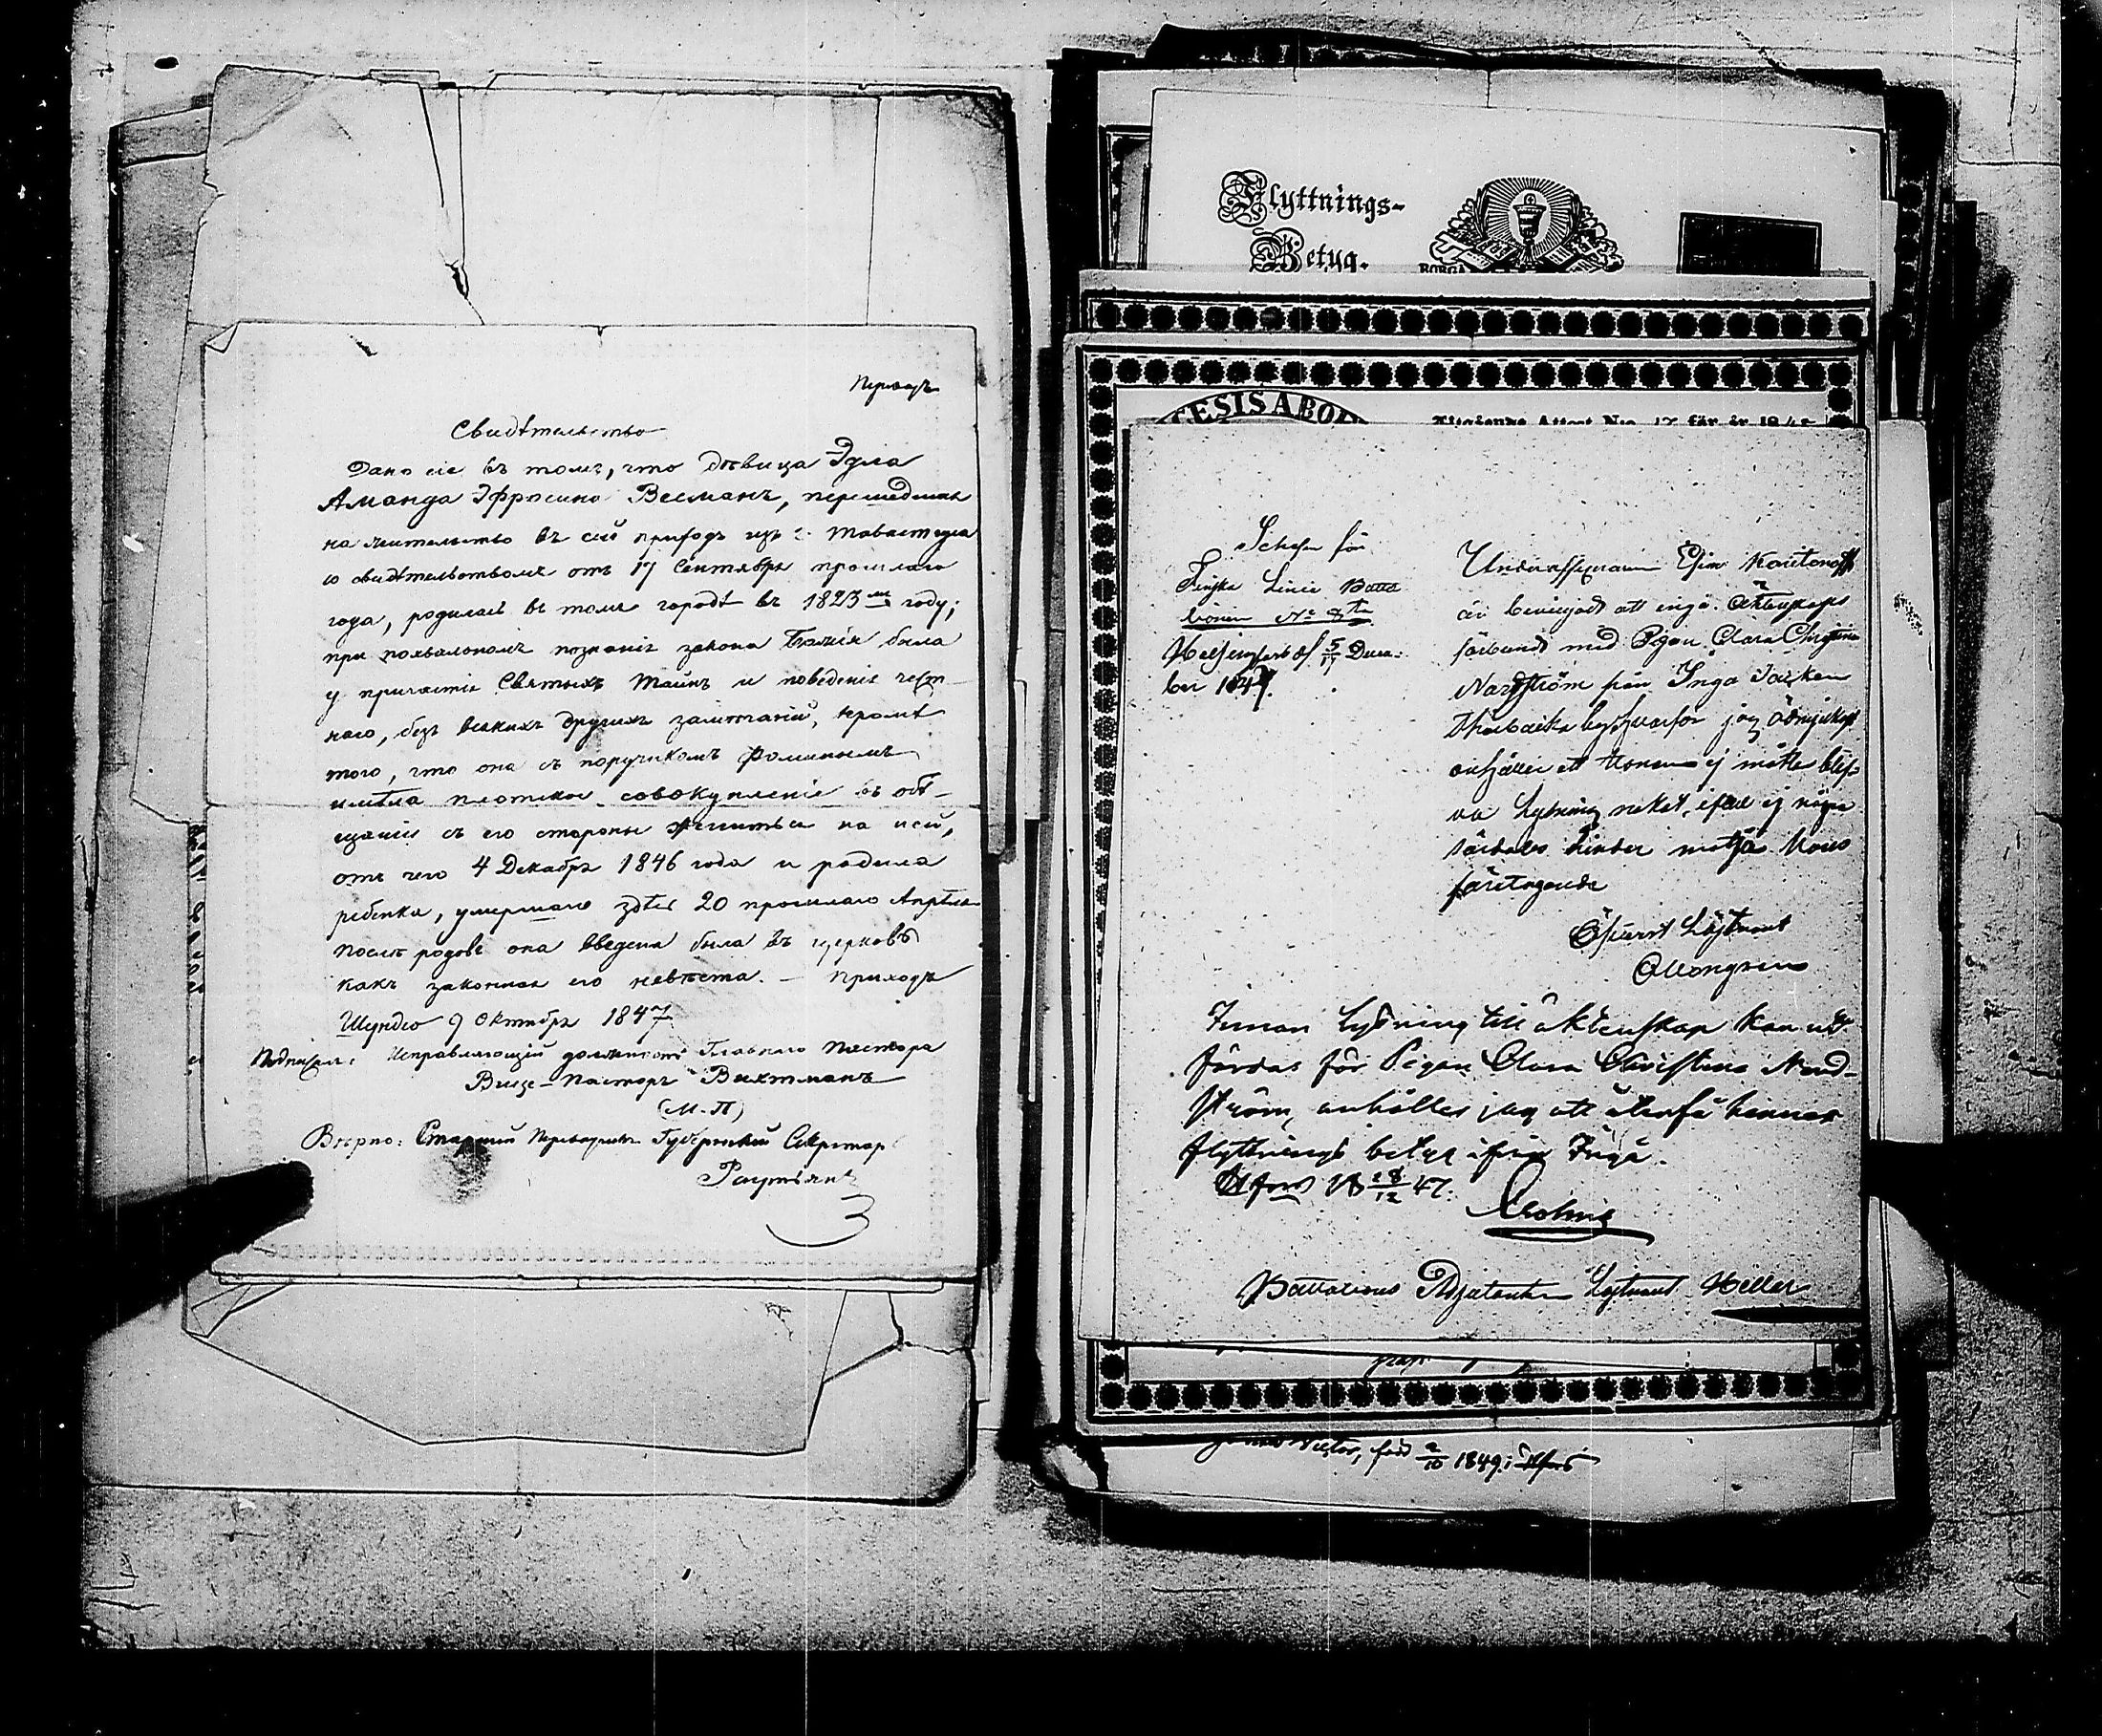 Переводъ
Свидѣтельство
Дано сіе въ томъ, что дѣвица Эдла
Аманда Эфросина Весманъ, перешедшая
на жительство въ сей приходъ изъ г. Тавастгуса
со свидѣтельствомъ отъ 17 Сентября прошлаго
года, родилась въ томъ городѣ въ 1823 м году;
при похвальномъ познаніи закона Божія была
у причастія Святыхъ Таинъ и поведенія чест-
наго, безъ всякихъ другихъ замѣчаній, кромѣ
того, что она съ поручикомъ Фоминымъ
имѣла плотское совокупленіе въ обѣ-
щаніи съ его стороны жениться на ней,
отъ чего 4 Декабря 1846 года и родила
ребенка, умершаго здѣсь 20 прошлаго Апрѣля
послѣ родовъ она введена была въ церковь
какъ законная его невѣста. — Приходъ
Шундео 9 Октября 1847
Подписалъ: Исправляющій должность Главнаго Пастора
Вице-Пасторъ Вихтманъ
(М.П)
Вѣрно: Старшій Переводчикъ Губернскій Секретарь
Flyttnings-
Betyg.
BORGÅ
CESIS ABO
Attest Nro 17 för år 184
Chefen för
Finska Linie Batta
lionen No 8
Helsingfors d 5/17 Decem-
ber 1847.
Underofficeraren Efim Karitonoff
är beviljadt att ingå Äktenskaps
förbund med Pigan Clara Christina
Nordström från Ingå Socken
by hvarför jag ödmjukast
anhåller att honom ej måtte blif-
va Lysning nekat, ifall ej några
särdeles hinder möta hans
företagande
Öfverst Löjtnant
Innan lysning till äktenskap kan ut-
färdas för Pigan Clara Christina Nord-
ström, anhåller jag att återfå hennes
flyttnings betyg ifrån Ingå.
H fors 18 28/12 47.
Battalions Adjutanten Löjtnant Heller
Victor, född 2/10 1849 i H fors